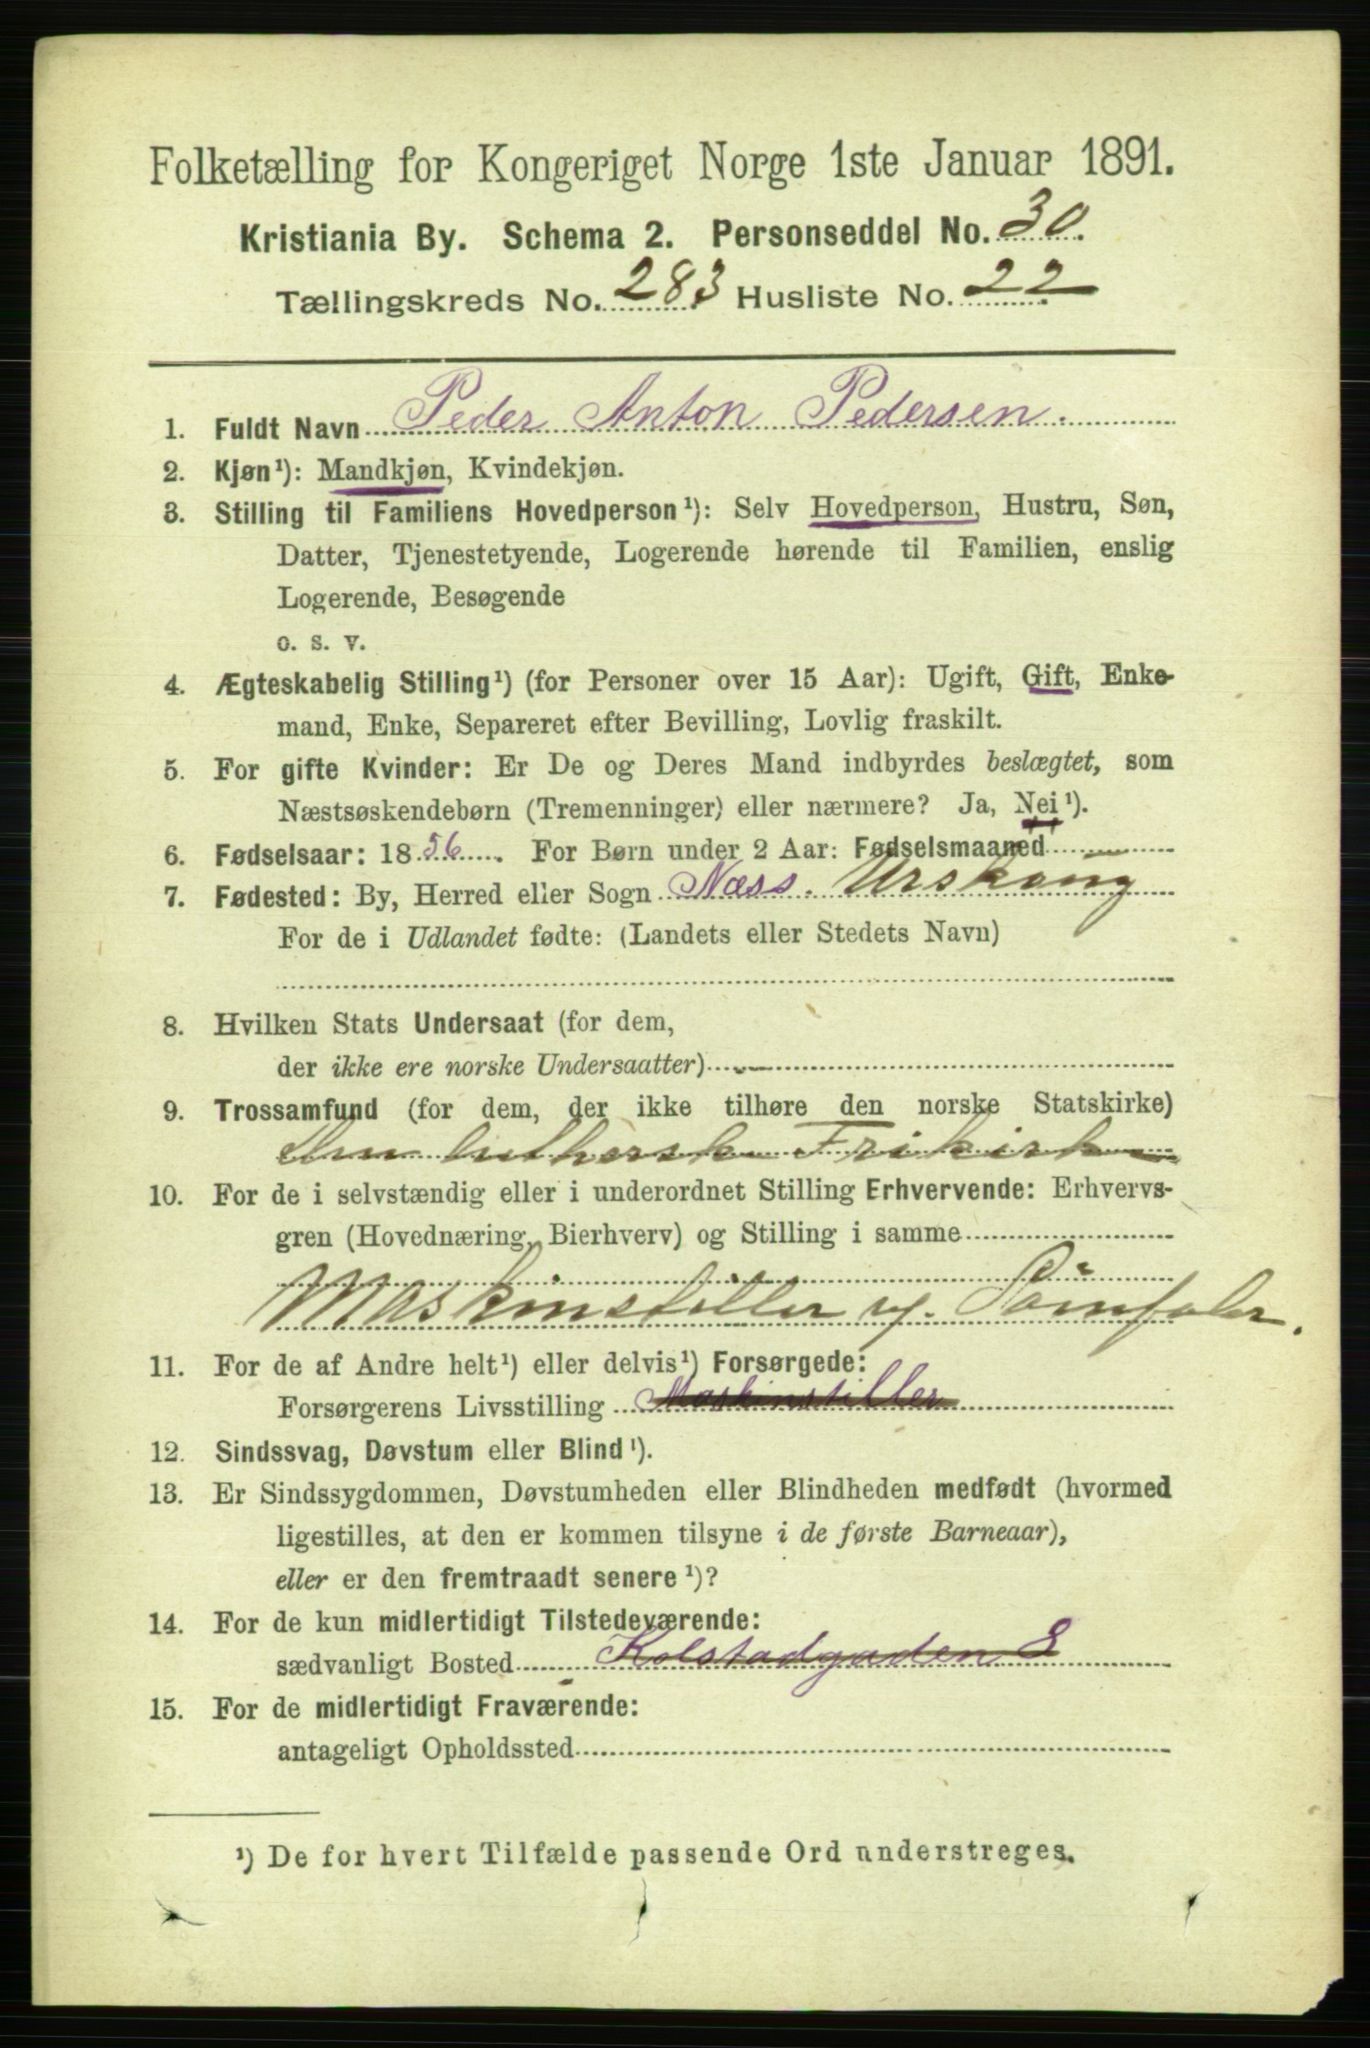 Folketælling for Kongeriget Norge 1ste Januar 1891.
Kristiania By. Schema 2. Personseddel No. 30.
Tællingskreds No. 283 Husliste No. 22
1. Fuldt Navn Peder Anton Pedersen.
2. Kjøn¹): Mandkjøn, Kvindekjøn.
3. Stilling til Familiens Hovedperson¹): Selv Hovedperson, Hustru, Søn,
Datter, Tjenestetyende, Logerende hørende til Familien, enslig
Logerende, Besøgende
o. s. v.
4. Ægteskabelig Stilling¹) (for Personer over 15 Aar): Ugift, Gift, Enke-
mand, Enke, Separeret efter Bevilling, Lovlig fraskilt.
5. For gifte Kvinder: Er De og Deres Mand indbyrdes beslægtet, som
Næstsøskendebørn (Tremenninger) eller nærmere? Ja, Nei¹).
6. Fødselsaar: 1856. For Børn under 2 Aar: Fødselsmaaned
7. Fødested: By, Herred eller Sogn Næss. Urskoug
For de i Udlandet fødte: (Landets eller Stedets Navn)
8. Hvilken Stats Undersaat (for dem,
der ikke ere norske Undersaatter)
9. Trossamfund (for dem, der ikke tilhøre den norske Statskirke)
luthersk Frikirk
10. For de i selvstændig eller i underordnet Stilling Erhvervende: Erhvervs-
gren (Hovednæring, Bierhverv) og Stilling i samme
Maskinstiller
11. For de af Andre helt¹) eller delvis¹) Forsørgede:
Forsørgerens Livsstilling Maskinstiller
12. Sindssvag, Døvstum eller Blind¹).
13. Er Sindssygdommen, Døvstumheden eller Blindheden medfødt (hvormed
ligestilles, at den er kommen tilsyne i de første Barneaar),
eller er den fremtraadt senere¹)?
14. For de kun midlertidigt Tilstedeværende:
sædvanligt Bosted Kolstadgaden 8
15. For de midlertidigt Fraværende:
antageligt Opholdssted
¹) De for hvert Tilfælde passende Ord understreges.